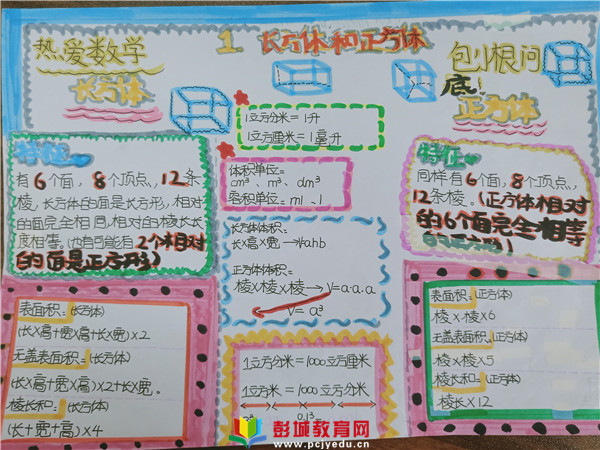 热爱数学
1 长方体和正方体
包川根问底!
长方体
正方体
1立方分米=1升
1立方厘米=1毫升
特征
有6个面,8个顶点,12条
棱,长方体的面是长方形,相对
的面完全相同,相对的棱长长
度相等。(也有可能有2个相对
的面是正方形)
体积单位:
cm³、m³、dm³
容积单位:ml、l
特征:
同样有6个面,8个顶点,
12条棱。(正方体相对
的6个面完全相等
长方体体积:
长×高×宽→ahb
正方体体积:
棱×棱×棱→V=a·a·a
V=a³
表面积:(长方体)
(长×高+宽×高+长×宽)×2
无盖表面积:(长方体)
(长×高+宽×高)×2+长×宽。
棱长和:(长方体)
(长+宽+高)×4
1立方分米=1000立方厘米
1立方米=1000立方分米
表面积:(正方体)
棱×棱×6
无盖表面积:(正方体)
棱×棱×5
棱长和:(正方体)
棱长×12
彭城教育网
www.pcjyedu.cn